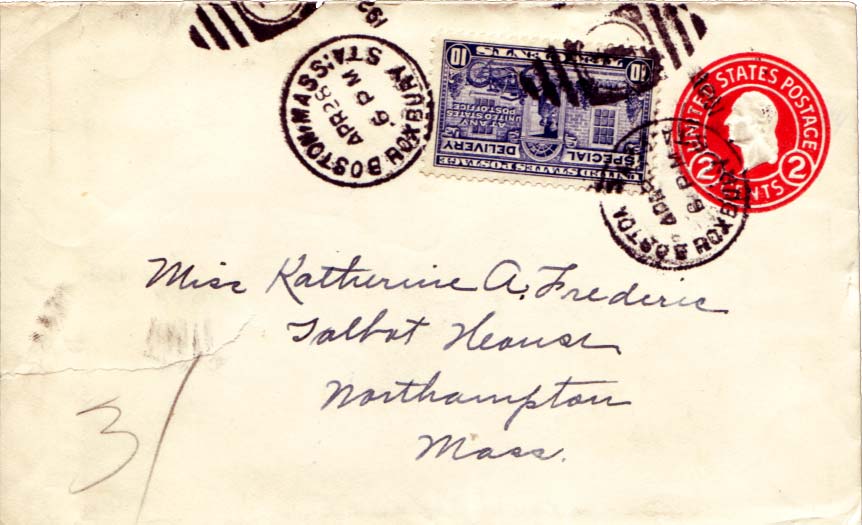 BOSTON, MASS.
ROXBURY STA.
APR 28
6 PM
192
UNITED STATES POSTAGE
SPECIAL DELIVERY
AT ANY
UNITED STATES
POST OFFICE
10 CENTS 10
UNITED STATES POSTAGE
2 CENTS 2
BOSTON
ROXBURY
6 PM
Miss Katherine A. Frederic
Talbot House
Northampton
Mass.
3